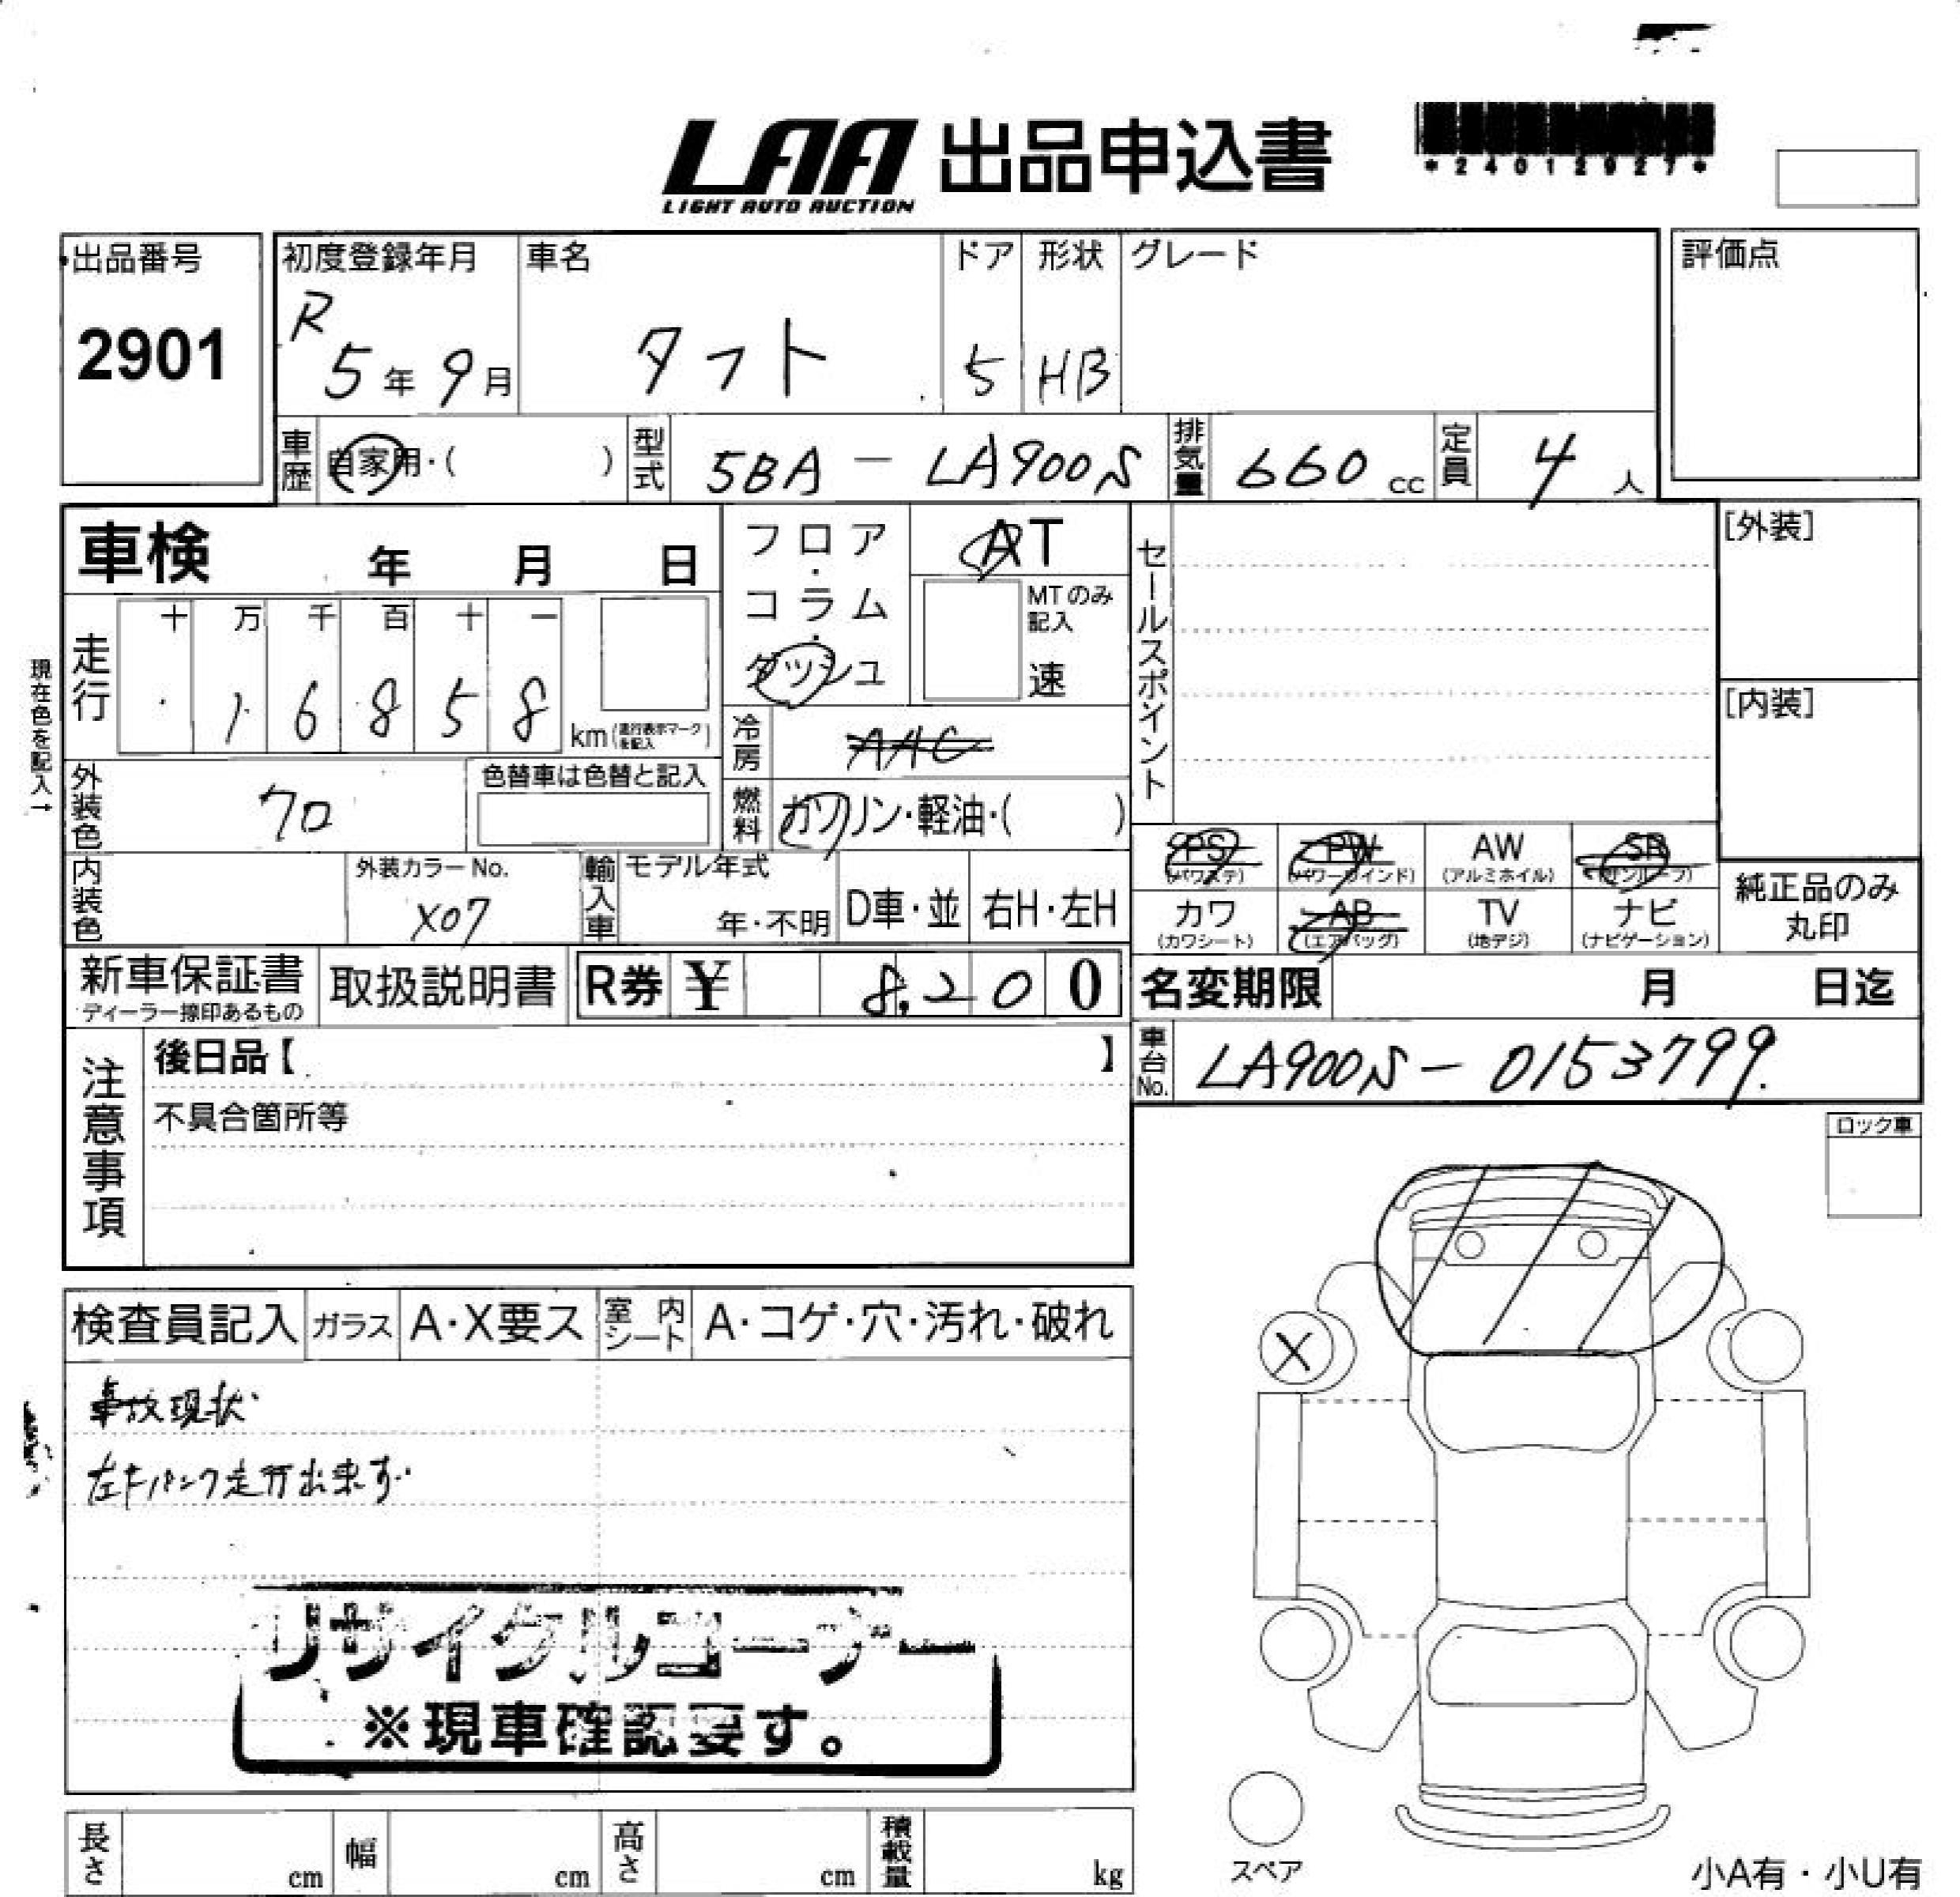 LAA 出品申込書
LIGHT AUTO AUCTION
*24012927*
出品番号
2901
初度登録年月
R
5年9月
車名
タフト
ドア
5
形状
HB
グレード
評価点
車歴
自家用・( )
型式
5BA - LA900S
排気量
660cc
定員
4人
車検 年 月 日
フロア・コラム・ダッシュ
AT
MTのみ記入
速
セールスポイント
[外装]
[内装]
現在色を記入→
走行
十 万 千 百 十 一
1 6 8 5 8
km(走行表示マークを記入)
冷房
AAC
燃料
ガソリン・軽油・( )
外装色
クロ
色替車は色替と記入
内装色
外装カラーNo.
X07
輸入車
モデル年式
年・不明
D車・並
右H・左H
PS
(パワステ)
PW
(パワーウインド)
AW
(アルミホイル)
SR
(サンルーフ)
カワ
(カワシート)
AB
(エアバッグ)
TV
(地デジ)
ナビ
(ナビゲーション)
純正品のみ
丸印
新車保証書
ディーラー捺印あるもの
取扱説明書
R券 ¥ 8,200
名変期限 月 日迄
車台No.
LA900S - 0153799
注意事項
後日品【 】
不具合箇所等
ロック車
検査員記入
ガラス
A・X要ス
室内シート
A・コゲ・穴・汚れ・破れ
事故現状
左Fパンク走行出来ず
X
リサイクルコーナー
※現車確認要す。
長さ cm
幅 cm
高さ cm
積載量 kg
スペア
小A有・小U有